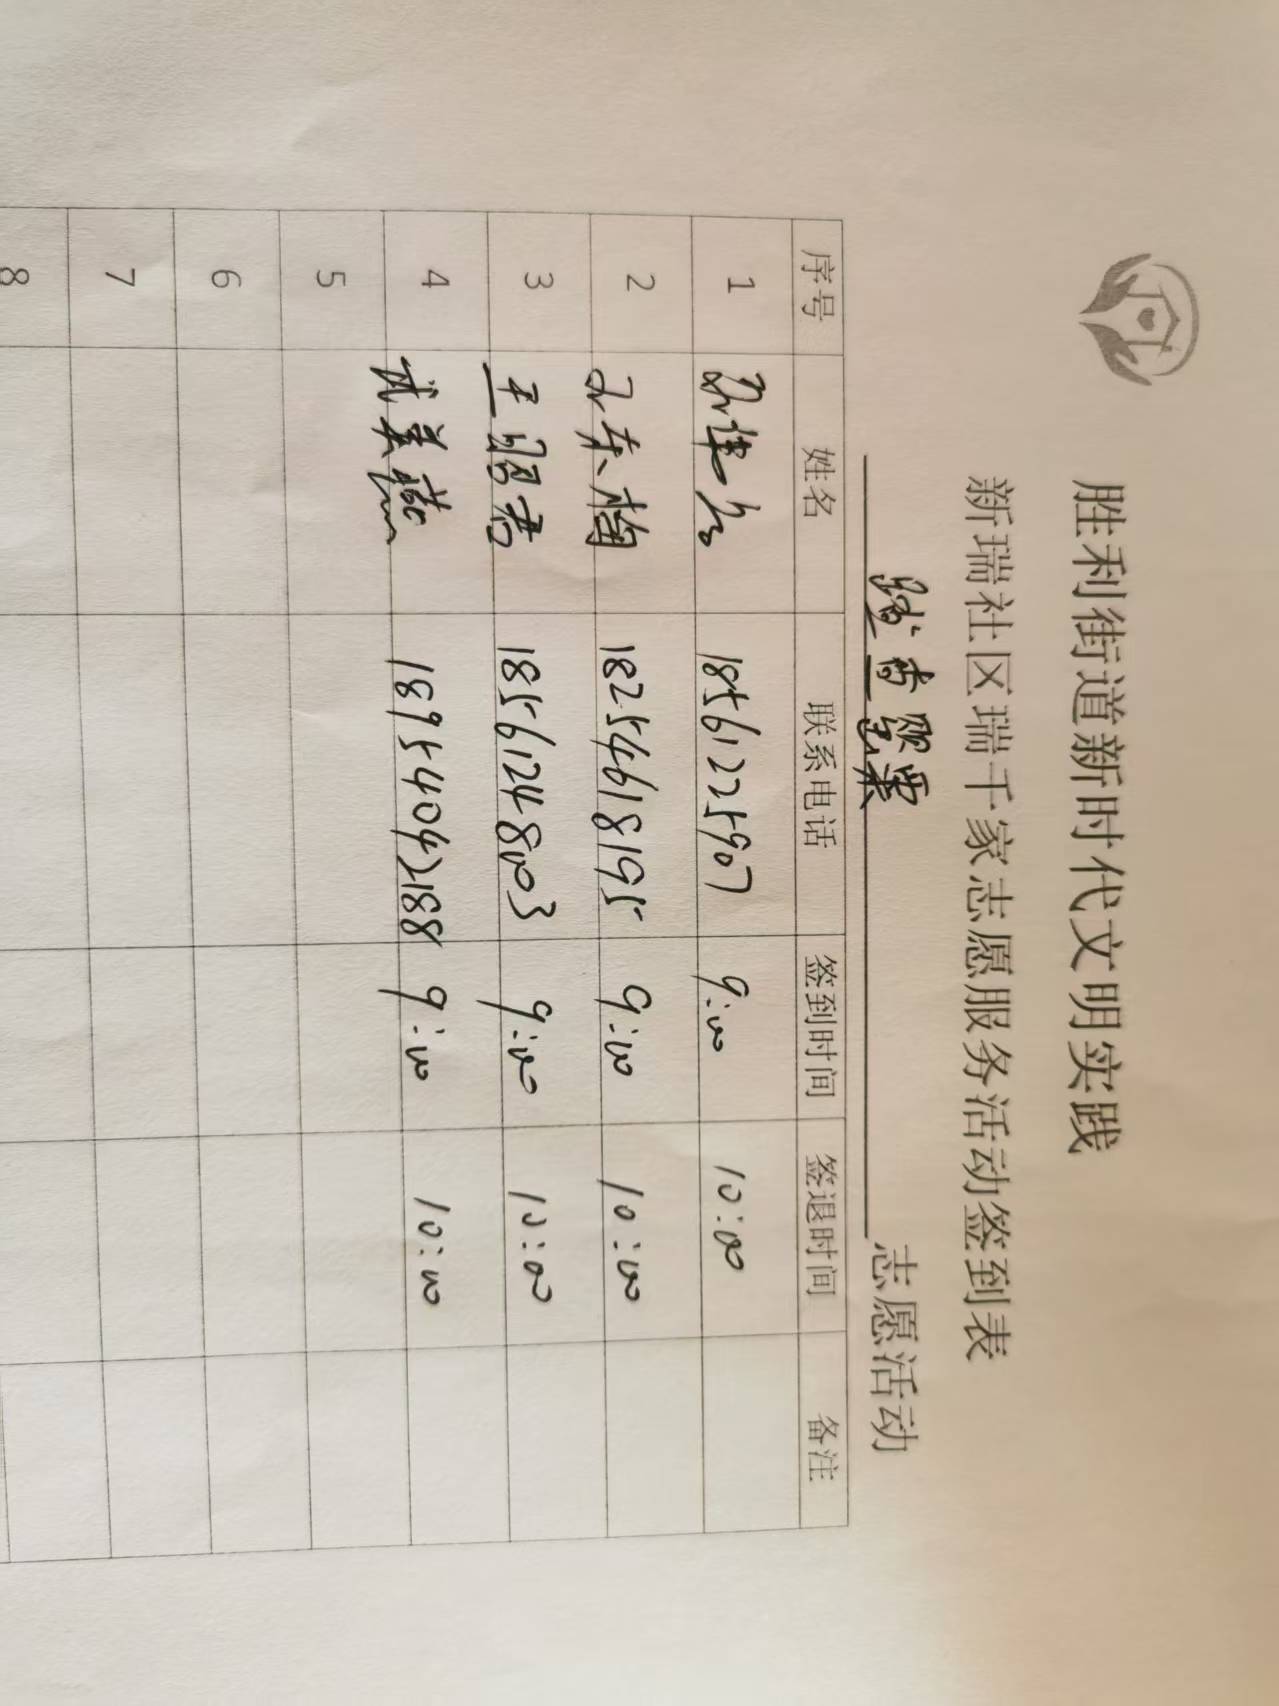 胜利街道新时代文明实践
新瑞社区瑞千家志愿服务活动签到表
志愿活动
序号 姓名 联系电话 签到时间 签退时间 备注
1 18561225907 9:00 10:00
2 18254618195 9:00 10:00
3 王昭君 18561248003 9:00 10:00
4 武美燕 18954042188 9:00 10:00
5
6
7
8